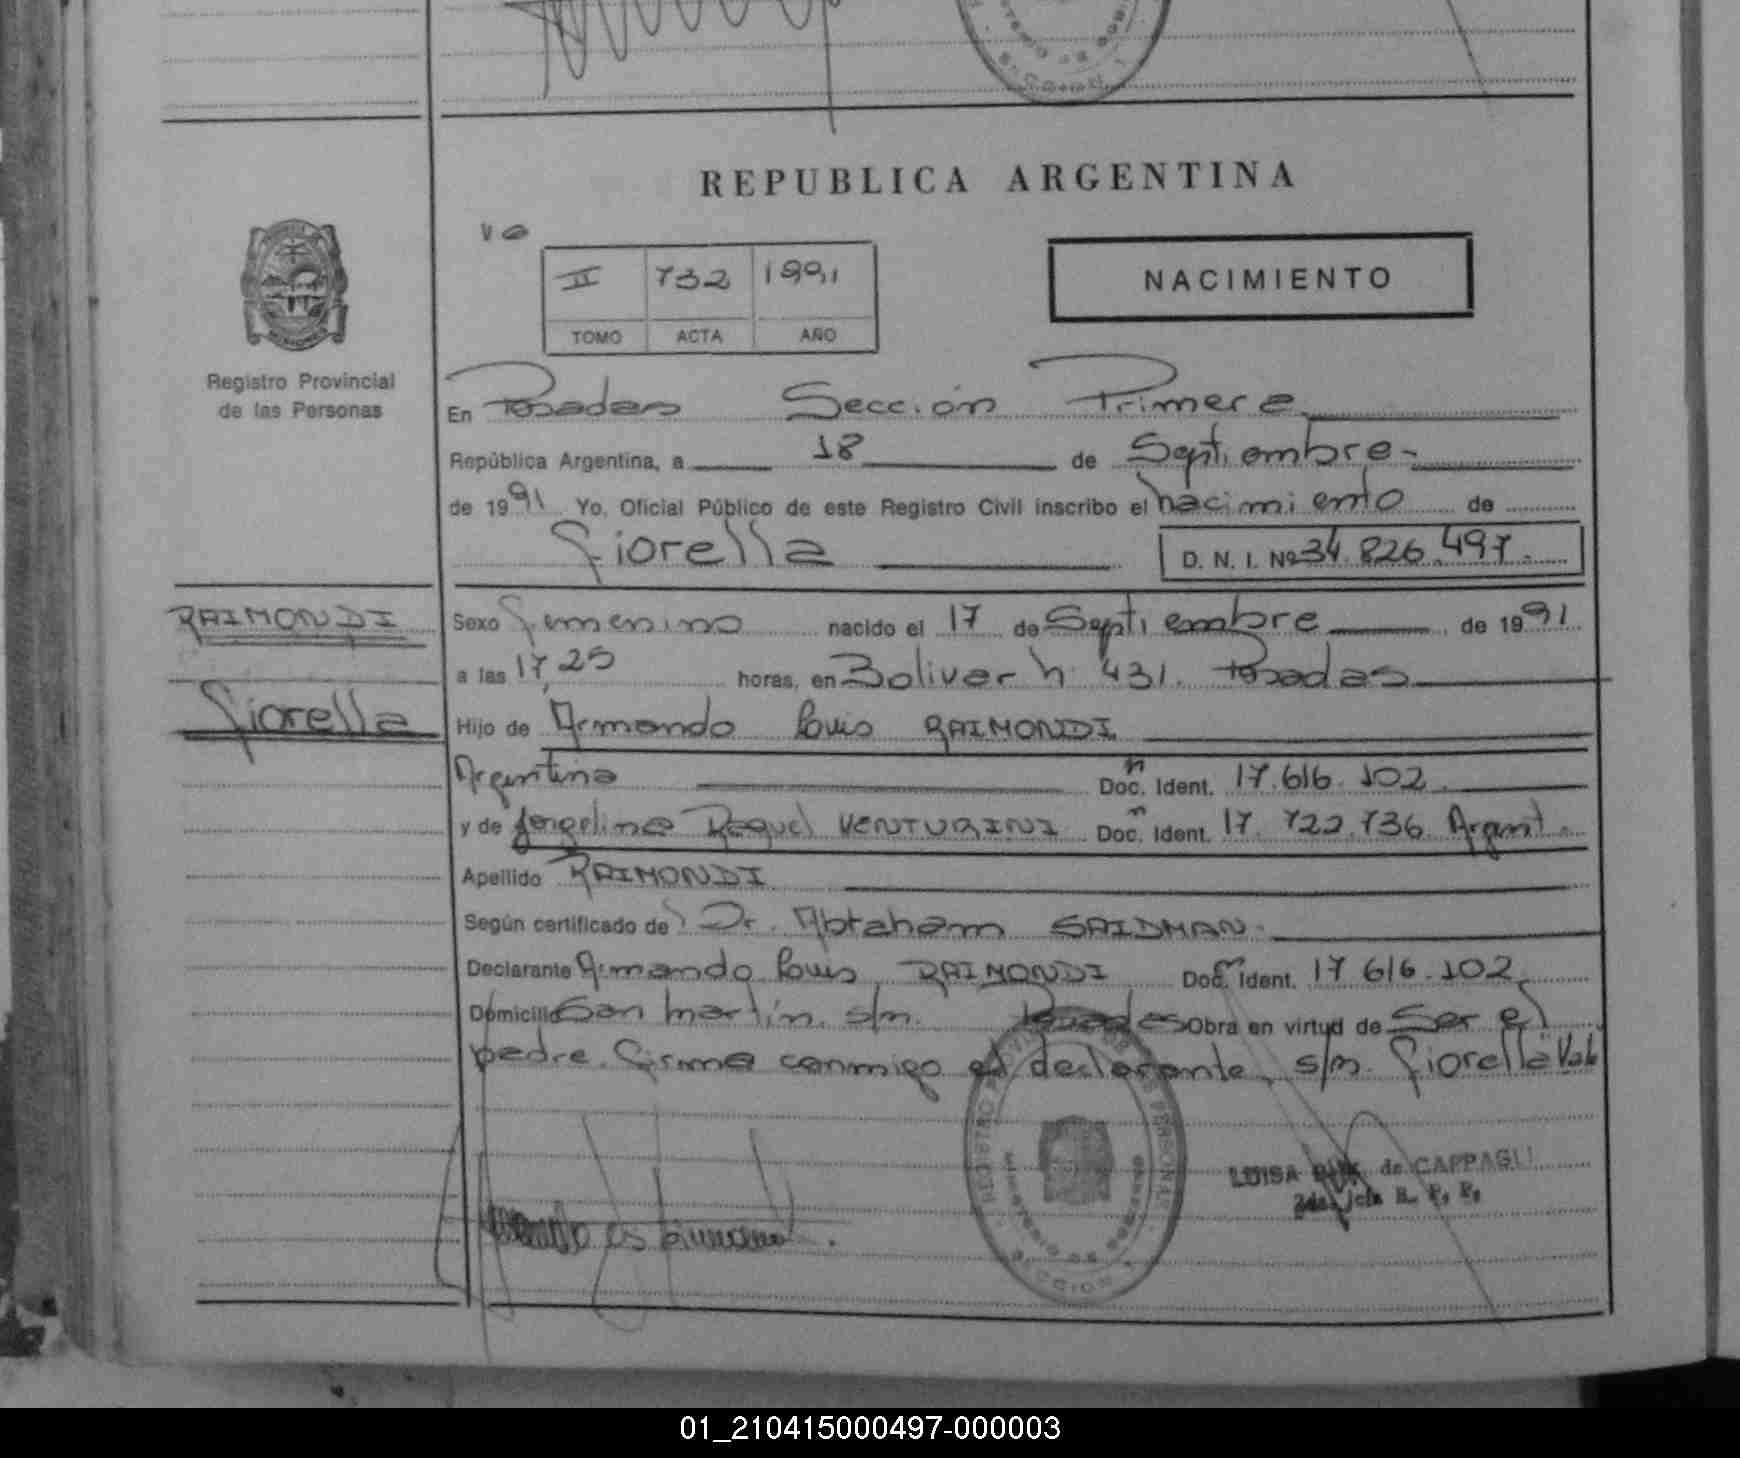 REPUBLICA ARGENTINA
II 732 1991
TOMO ACTA AÑO
NACIMIENTO
Registro Provincial
de las Personas
En Posadas Sección Primera
República Argentina, a 18 de Septiembre-
de 1991 Yo, Oficial Público de este Registro Civil inscribo el nacimiento de
Fiorella D. N. I. Nº 34.826.497.
RAIMONDI
Fiorella
Sexo Femenino nacido el 17 de Septiembre de 1991
a las 17,25 horas, en Bolivar n· 431. Posadas
Hijo de Armando Luis RAIMONDI
Argentina Doc. Ident. 17.616.102
y de Angelina Raquel VENTURINI Doc. Ident. 17.722.736 Argent.
Apellido RAIMONDI
Según certificado de Dr. Abraham SAIDMAN.
Declarante Armando Luis RAIMONDI Doc. Ident. 17.616.102
Domicilio San Martín s/n. Posadas Obra en virtud de Ser el
padre. Firma conmigo el declarante, s/n. Fiorella Vale
LUISA de CAPPAGLI
2da. Jefa R. P. P.
REGISTRO PROVINCIAL DE LAS PERSONAS
MINISTERIO DE GOBIERNO
01_210415000497-000003